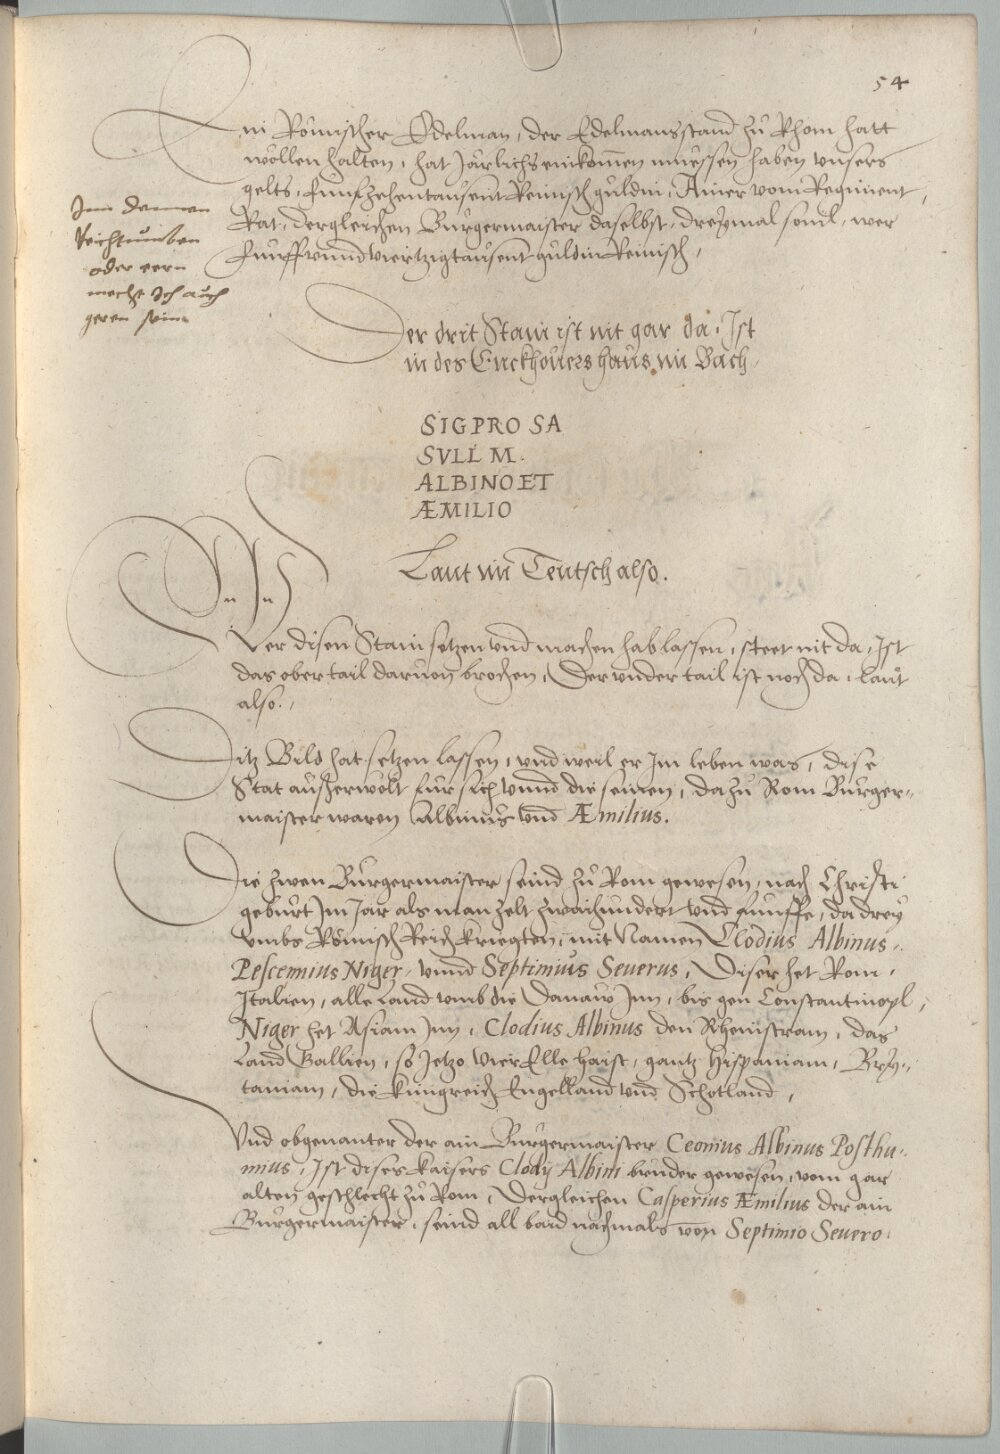 54
Ein Römischer Edelman, der Edelmansstand zů Rhom hatt
wöllen halten, hat Järlichs einkom̄en müessen haben vnsers
gelts, funfzehentausent Reinisch guldin, Ainer vom Regiment,
Rat, dergleichen Bürgermaister daselbst, dreymal souil, wer
funffvnnd viertzigtausent guldin Reinisch,
oder
mecht Ich auch
geren sein
Der drit Stain ist nit gar da, Ist
in des Enckhouers haus im Bach,
SIG PRO SA
SVLL M.
ALBINO ET
ÆMILIO
Laut im Teutsch also.
Wer disen Stain setzen vnd machen hab lassen, steet nit da, Ist
das ober tail daruon brochen, Der vnder tail ist noch da, laut
also.
Ditz Bild hat setzen lassen, vnd weil er Im leben was, dise
Stat außerwölt für sich vnnd die seinen, da zů Rom Bürger=
maister waren Albinus vnd Æmilius.
Die zwen Bürgermaister seind zů Rom gewesen, nach Christi
geburt Im Jar als man zelt zwaihundert vnd funffe, da drey
vmbs Römisch Reich kriegten, mit Namen Clodius Albinus,
Pescennius Niger, vnnd Septimius Seuerus, Diser het Rom,
Italien, alle Land vmb die Danaw Inn, bis gen Constantinopl,
Niger het Asiam Inn, Clodius Albinus den Rheinstram, das
Land Gallien, so Jetzo vier Elle haist, gantz Hispaniam, Bry=
taniam, die kunigreich Engelland vnd Schotland,
Vnd obgenanter der ain Burgermaister Ceonius Albinus Posthu=
mius, Ist dises kaisers Clody Albini bruder gewesen, vom gar
alten geschlecht zů Rom, Dergleichen Casperius Æmilius der ain
Burgermaister, seind all baid nachmals von Septimio Seuero